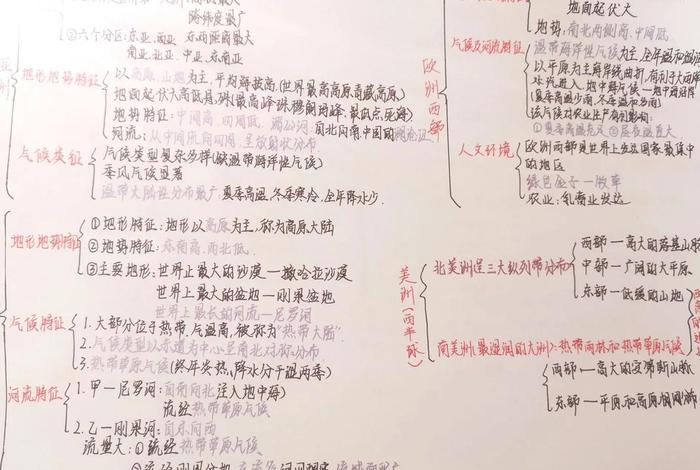 跨纬度最广
②六个分区：东亚、西亚 东西距离最大
南亚、北亚、中亚、东南亚
地形地势特征
以高原、山地为主，平均海拔高。(世界最高高原：青藏高原)
地面起伏大，高低悬殊(最高峰：珠穆朗玛峰，最低点：死海)
地势特征：中间高，四周低
河流：从中间流向四周，呈放射状分布
气候类型
气候类型复杂多样(缺温带海洋性气候)
季风气候显著
温带大陆性分布最广：夏季高温，冬季寒冷，全年降水少.
地形地势特征
①地形特征：地形以高原为主，称为高原大陆
②地势特征：东南高，西北低.
③主要地形：世界上最大的沙漠—撒哈拉沙漠
世界上最大的盆地—刚果盆地
世界上最长的河流—尼罗河
气候特征
1.大部分位于热带，气温高，被称为“热带大陆”.
2.气候类型以赤道为中心呈南北对称分布
3.热带草原气候(终年炎热，降水分干湿两季)
河流特征
1.甲—尼罗河：自南向北注入地中海
流经热带草原气候
2.乙—刚果河：自东向西
流量大：①流经热带草原气候
欧洲西部
地面起伏大
地势：南北两侧高，中间低
气候及河流特征
温带海洋性气候为主，全年温和
以平原为主，海岸线曲折，有利于大西洋
水汽进入，地中海气候—地中海沿岸
(夏季高温少雨，冬季温和多雨)
该气候对农业生产有何影响：
人文环境
欧洲西部是世界上发达国家最集中
的地区
绿色金子—牧草
农业：乳畜业发达
美洲(西半球)
北美洲呈三大纵列带分布
西部—高大的落基山脉
中部—广阔的大平原
东部—低缓的山地
南美洲(最湿润的大洲)：热带雨林和热带草原气候
西部—高大的安第斯山脉
东部—平原和高原相间分布